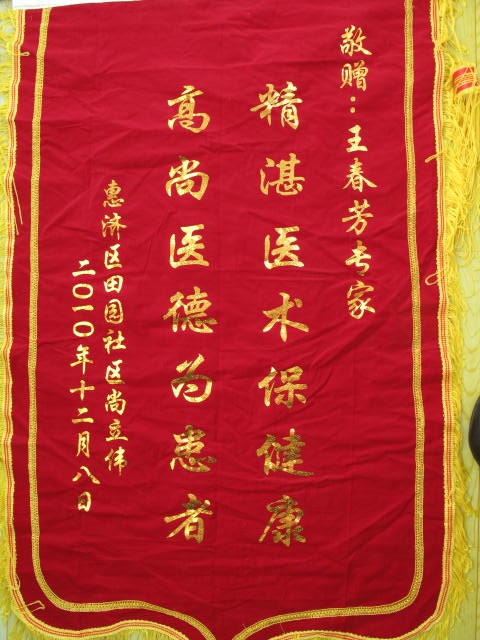 敬赠：王春芳专家
精湛医术保健康
高尚医德为患者
惠济区田园社区尚立伟
二〇一〇年十二月八日